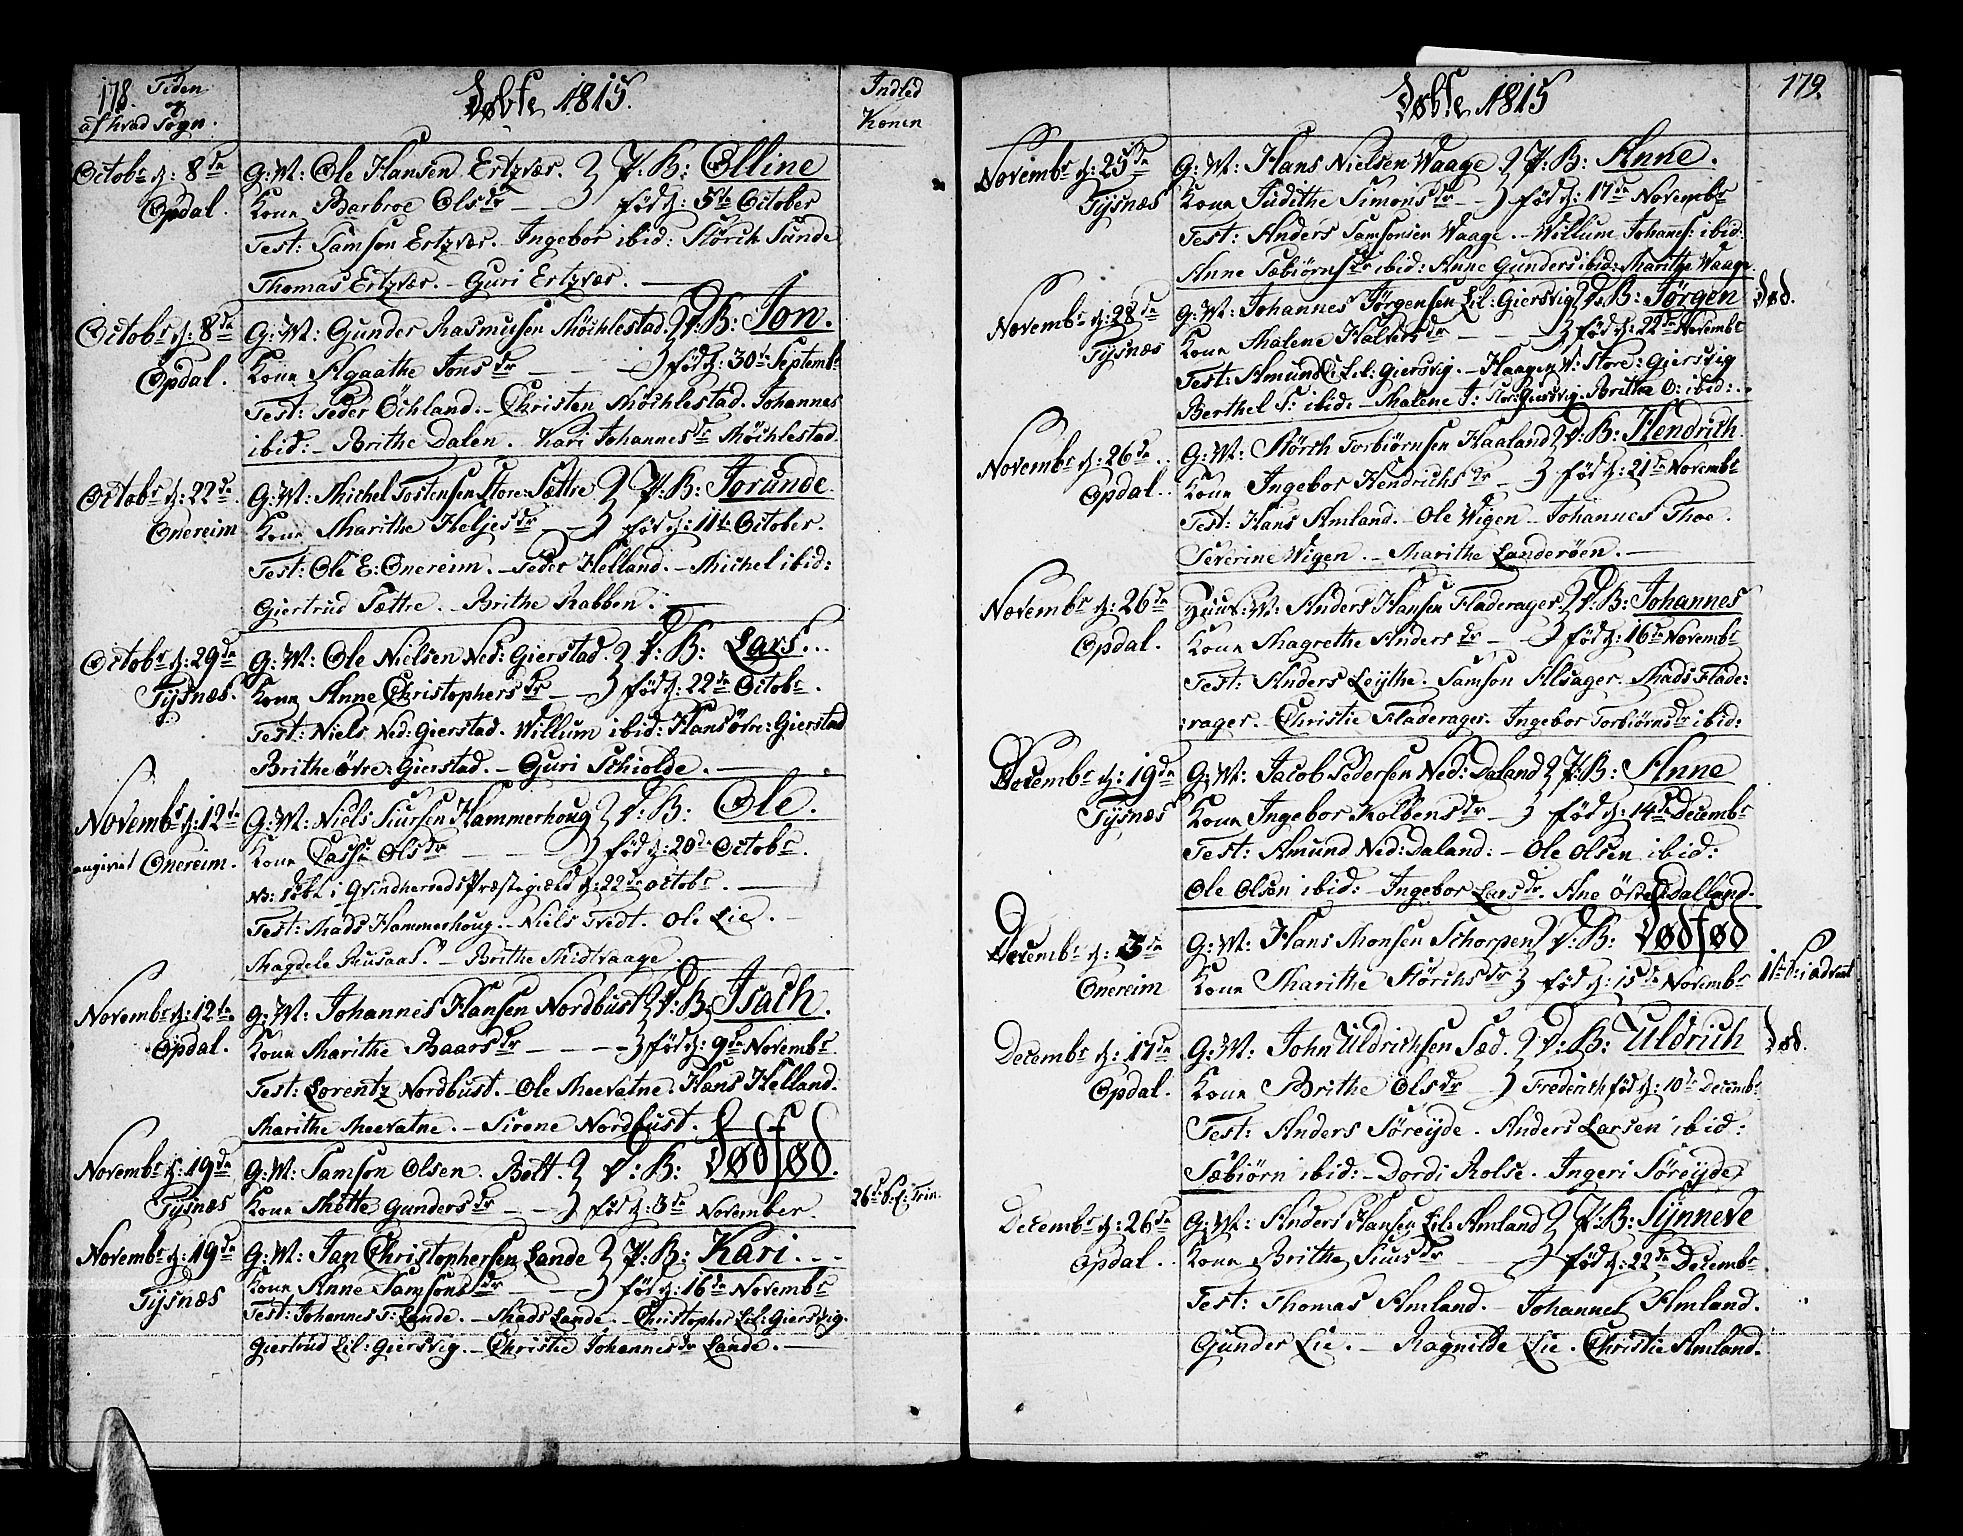 178. Tiden
og
af hvad Sogn.
Døbte 1815.
Indled
Konen
Octobr d: 8de
Opdal.
G: M: Ole Hansen Ertzvær. } P: B: Olline
Kone Barbroe Olsdr — — } fød d: 5te October
Test: Samson Ertzvær. Ingebor ibid: Størch Sunde
Thomas Ertzvær. – Guri Ertzvær. —
Octobr d: 8de
Opdal.
G: M: Gunder Rasmusen Møchlestad. } D: B: Jon.
Kone Agaathe Jonsdr — — } fød d: 30te Septembr
Test: Peder Öchland. – Christen Møchlestad. Johannes
ibid: – Brithe Dalen. Kari Johannesdr Møchlestad.
Octobr d: 22de
Onereim
G: M: Michel Tostensen Store-Sæthre } P: B: Jorunde
Kone Marithe Heljesdr — — } fød d: 11te October.
Test: Ole E: Onereim. – Peder Helland. – Michel ibid:
Giertrud Sættre. – Brithe Rabben. —
Octobr d: 29de
Tysnæs.
G: M: Ole Nielsen Ned: Gierstad. } D: B: Lars...
Kone Anne Christophersdr — — } fød d: 22de Octobr.
Test: Niels Ned: Gierstad. Willum ibid: Hans Övre: Gierstad
Brithe Övre: Gierstad. – Guri Schiolde. —
Novembr d: 12te
angivet Onereim.
G: M: Niels Siursen Hammerhoug } D: B: Ole.
Kone Olsdr — — } fød d: 20de Octobr.
No: døbt i Qvindherreds Præstegield d: 22de octobr. —
Test: Mads Hammerhoug. – Niels Tvedt. Ole Lie. –
Magdele Husaas. " Brithe Midtvaage. —
Novembr d: 12te
Opdal.
G: M: Johannes Hansen Nordbust } D: B: Isach.
Kone Marithe Baarsdr — — — } fød d: 9de Novembr.
Test: Lorentz Nordbust. – Ole Meevatne. Hans Helland.
Marithe Meevatne. – Sirene Nordbust. —
Novembr d: 19de
Tysnæs
G: M: Samson Olsen. Bøtt. } D: B: Dødfød.
Kone Mette Gundersdr — — } fød d: 3de November.
26de S. e: Trin.
Novembr d: 19de
Tysnæs
G: M: Jan Christophersen Lande } P: B: Kari. – –
Kone Anne Samsonsdr — — } fød d: 16de Novembr
Test: Johannes T: Lande. – Mads Lande. – Christopher Lil: Giersvig.
Giertrud Lil: Giersvig. – Christie Johannesdr Lande. —
Døbte 1815
179.
Novembr d: 25de
Tysnæs
G: M: Hans Nielsen Waage } P: B: Anne.
Kone Judithe Simonsdr – – } fød d: 17de Novembr
Test: Anders Samsonsen Waage. – Willum Johanes: ibid:
Anne Sæbiørnsdr ibid: Anne Gunders ibid: Marithe Waage.
Novembr d: 28de
Tysnæs
G: M: Johannes Jørgensen Lil: Giersvig } D: B: Jørgen
død.
Kone Malene Halversdr — — — } fød d: 22de Novembr
Test: Amund Lil: Giersvig. – Haagen N: Store: Giersvig
Berthel S: ibid. – Malene J: Stor: Giersvig. Brithe O: ibid: –
Novembr d: 26de
Opdal..
G: M: Størch Torbiørnsen Haaland } D: B: Hendrich
Kone Ingebor Hendrichsdr – } fød d: 21de Novembr
Test: Hans Amland. – Ole Wigen – Johannes Thoe.
Severine Wigen. – Marithe Landerøen. —
Novembr d: 26de
Opdal.
Huus: M: Anders Hansen Fladerager } D: B: Johannes
Kone Magrethe Andersdr – – } fød d: 16de Novembr
Test: Anders Leijthe. Samson Alsager. Mads Flade:
:rager. – Christie Fladerager. Ingebor Torbiørnsdr ibid:
Decembr d: 19de
Tysnæs
G: M: Jacob Pedersen Ned: Daland } P: B: Anne
Kone Ingebor Kolbensdr – } fød d: 14de Decembr
Test: Amund Ned: Daland: – Ole Olsen ibid:
Ole Olsen ibid: – Ingebor Larsdr. Ane Öfre Dalland.
Decembr d: 3de
Onereim
G: M: Hans Monsen Schorpen } D: B: Dødfød
Kone Marithe Størchsdr } fød d: 15de Novembr
1te S: i advent
Decembr d: 17de
Opdal.
G: M: John Uldrichsen Sæd. } D: B: Uldrich
død.
Kone Brithe Olsdr } Frederich fød d: 10de Decembr
Test: Anders Søreijde. Anders Larsen ibid:
Sæbiørn ibid: – Dordi Rolse. Ingeri Søreijde
Decembr d: 26de
Opdal..
G: M: Anders Hansen Lil: Amland } P: B: Synneve
Kone Brithe Siursdr — — } fød d: 22de Decembr
Test: Thomas Amland. – Johannes Amland.
Gunder Lie. – Ragnilde Lie. Christie Amland.